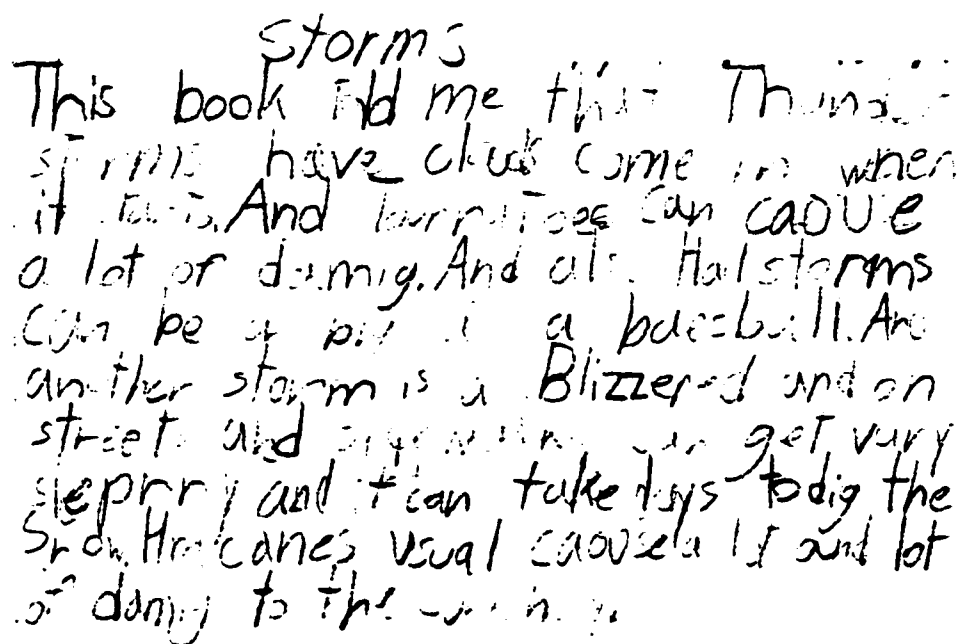 storms
This book told me that Thunder
storms have clouds come in when
it starts. And Torrnatoes Can caouve
a lot of damig. And als Halstorms
can be a big a baesball. And
another storm is a Blizzered and on
streets and can get vary
slepprry and it can take days to dig the
Snow. Hurricanes usual caouse a lot and lot
of damig to the